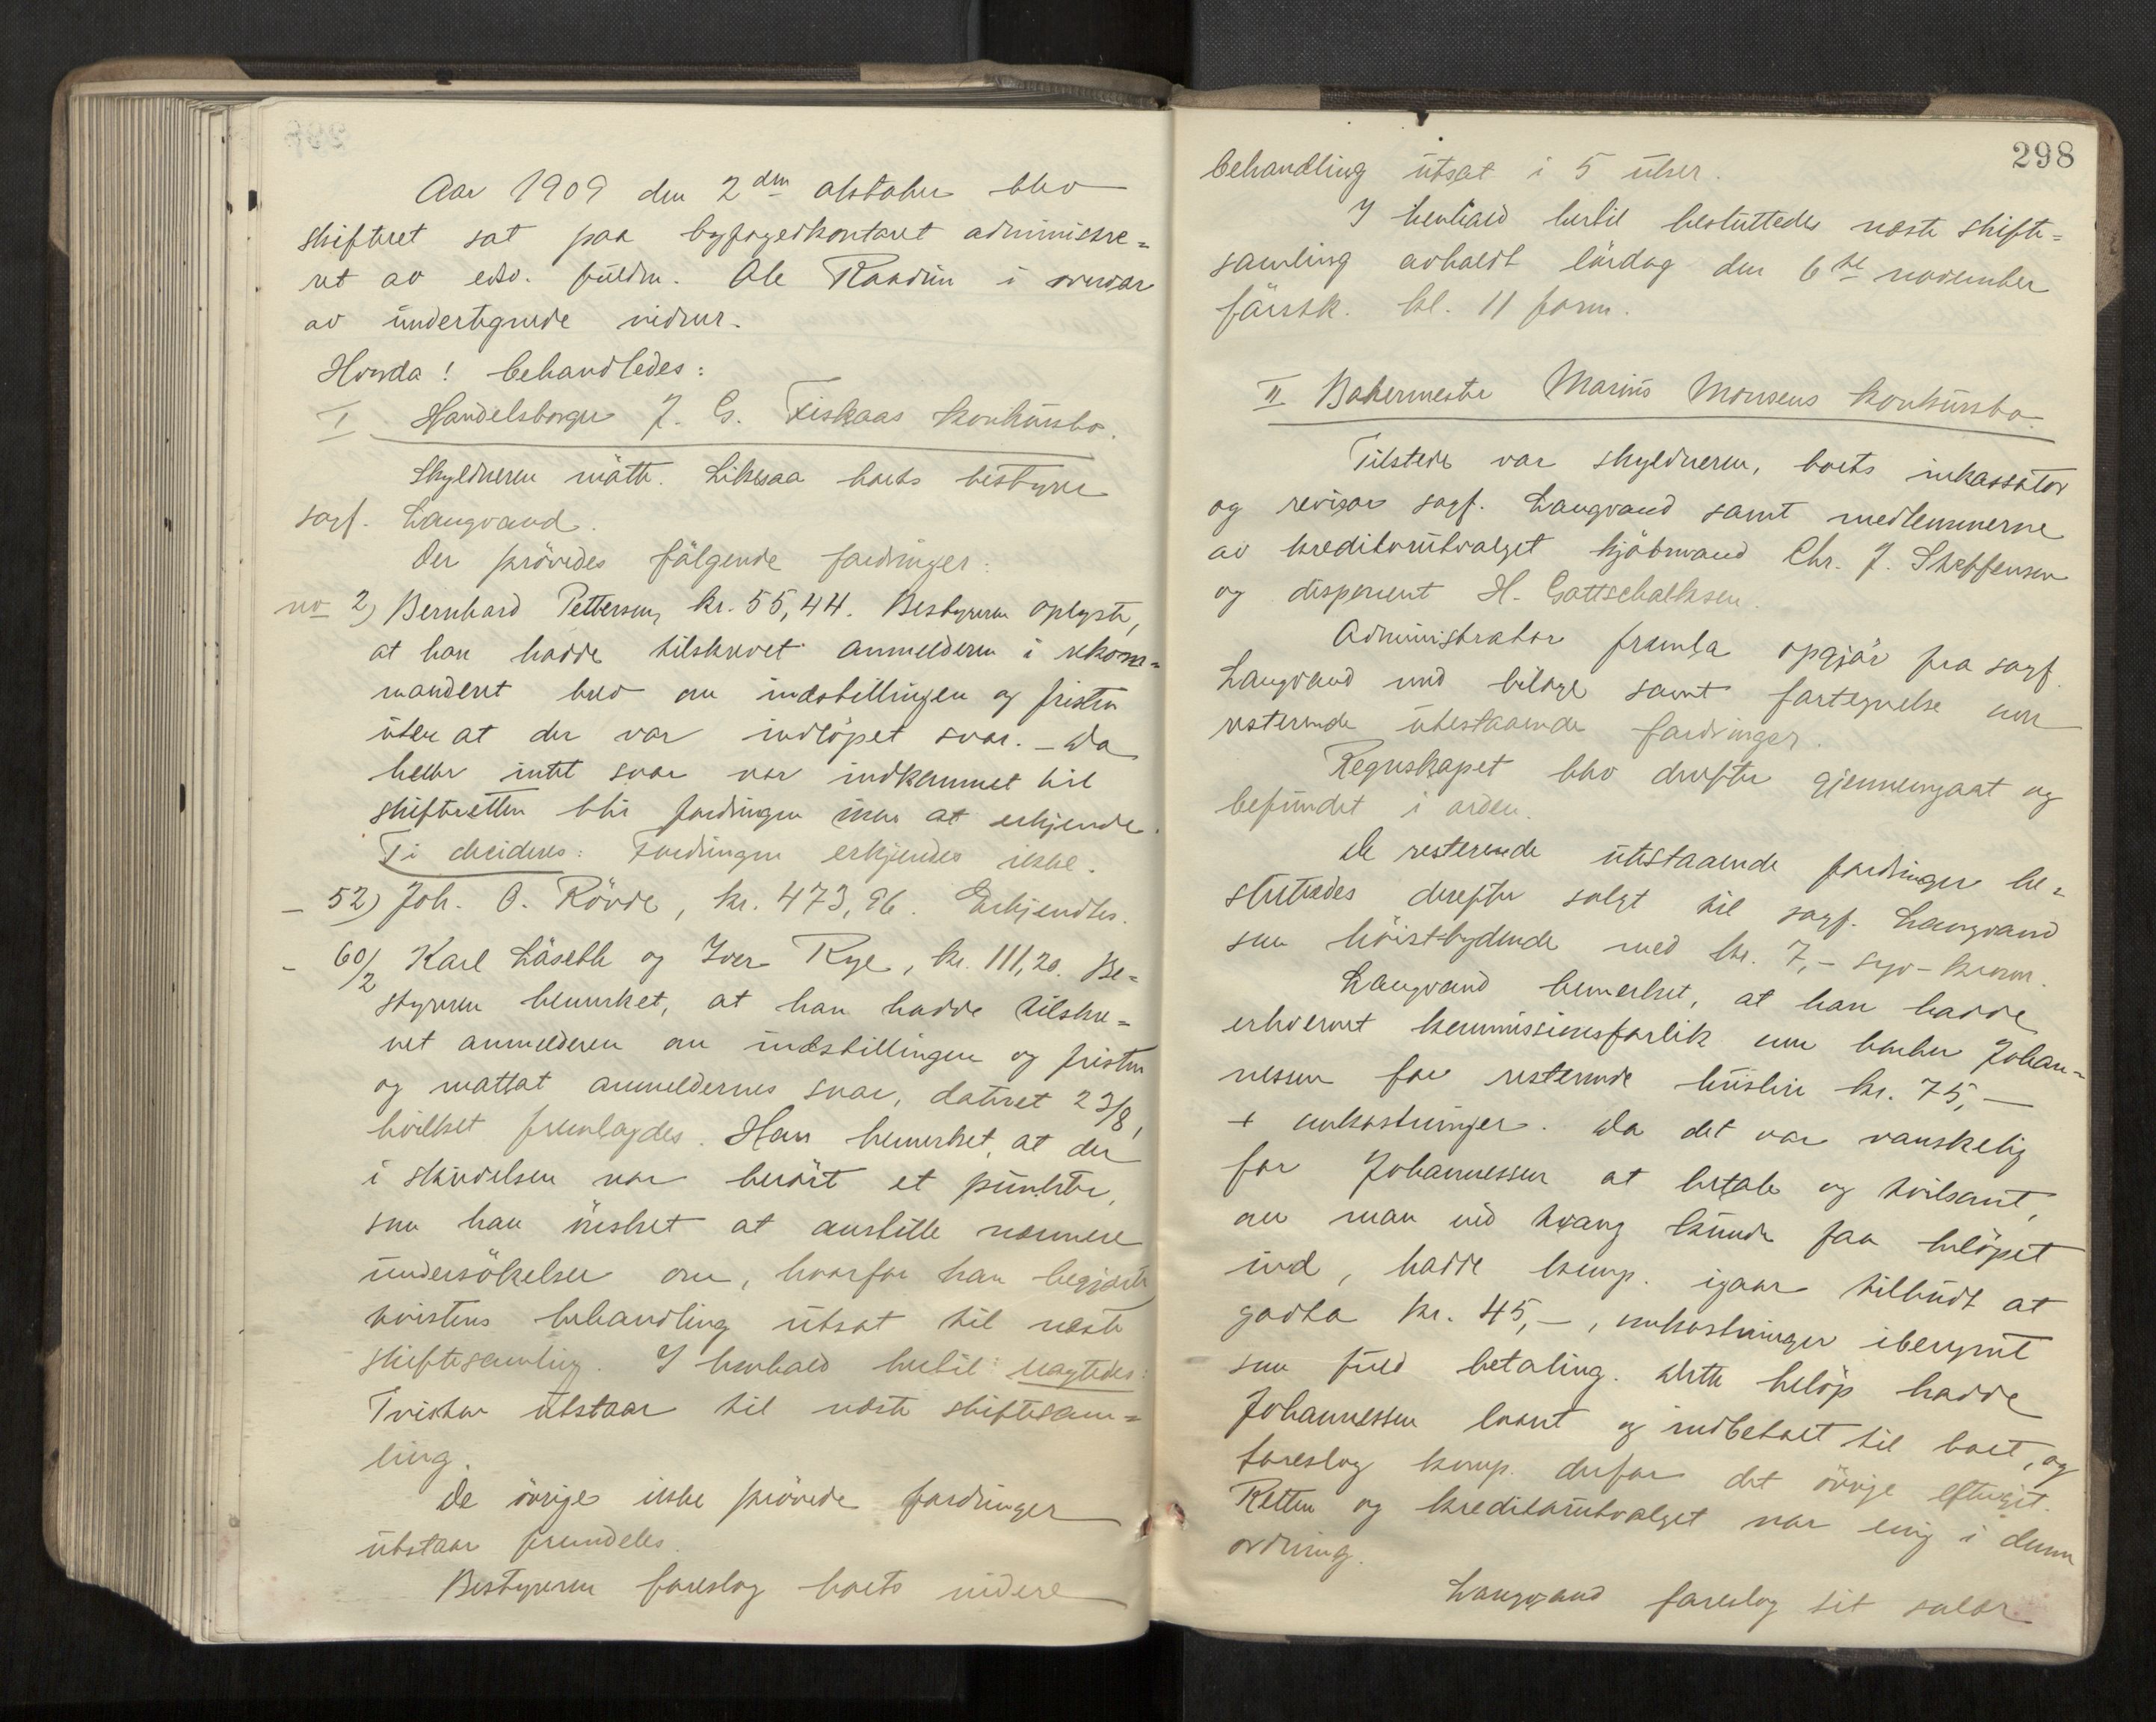 Aar 1909 den 2den oktober blev
skifteret sat paa byfogedkontoret administre=
ret av edsv. fuldm. Ole Raadim i overvær
av undertegnede vidner.
Hvorda! behandledes:
I Handelsborger J. G. Fiskaas konkursbo.
Skyldneren møtte. Likesaa boets bestyrer
sagf. Langvand.
Der prøvedes følgende fordringer:
no 2) Bernhard Pettersen, kr. 55,44. Bestyreren oplyste,
at han hadde tilskrevet anmelderen i rekom=
manderet brev om indstillingen og fristen
uten at der var indløpet svar. – Da
heller intet svar var indkommet til
skifteretten blir fordringen ikke at erkjende.
Ti decideres: Fordringen erkjendes ikke.
– 52) Joh. O. Rövde, kr. 473,96. Erkjendtes.
– 60/2 Karl Läseth og Iver Rye, kr. 111,20. Be=
styreren bemerket, at han hadde tilskre=
vet anmelderen om indstillingen og fristen
og mottat anmeldernes svar, dateret 23/8,
hvilket fremlagdes. Han bemerket, at der
i skrivelsen var berört et punkt,
som han önsket at anstille nærmere
undersökelser om, hvorfor han begjærte
tvistens behandling utsat til næste
skiftesamling. I henhold hertil vagtedes:
Tvisten utstaar til næste skiftesam=
ling.
De övrige ikke prövede fordringer
utstaar fremdeles.
Bestyreren foreslog boets videre
298
behandling utsat i 5 uker.
I henhold hertil besluttedes næste skifte=
samling avholdt lördag den 6te november
först. kl. 11 form.
II Bakermester Marius Monsens konkursbo.
Tilstede var skyldneren, boets inkassator
og revisor sagf. Langvand samt medlemmerne
av kreditorutvalget kjöbmand Chr. J. Steffensen
og disponent H. Gottschalksen.
Administrator fremla opgjör fra sagf.
Langvand med bilage samt fortegnelse over
resterende utestaaende fordringer.
Regnskapet blev derefter gjennemgaat og
befundet i orden.
De resterende utestaaende fordringer be=
sluttedes derefter solgt til sagf. Langvand
som höistbydende med kr. 7,– syv – kroner.
Langvand bemerket, at han hadde
erhvervet kommissionsforlik over barber Johan=
nessen for resterende husleie kr. 75,–
+ omkostninger. Da det var vanskelig
for Johannessen at betale og tvilsomt,
om man ved tvang kunde faa belöpet
ind, hadde komp. igaar tilbudt at
godta kr. 45,–, omkostninger iberegnet
som fuld betaling. Dette belöp hadde
Johannessen laant og indbetalt til boet, og
foreslog komp. derfor det övrige eftergit.
Retten og kreditorutvalget var enig i denne
ordning.
Langvand foreslog sit salær